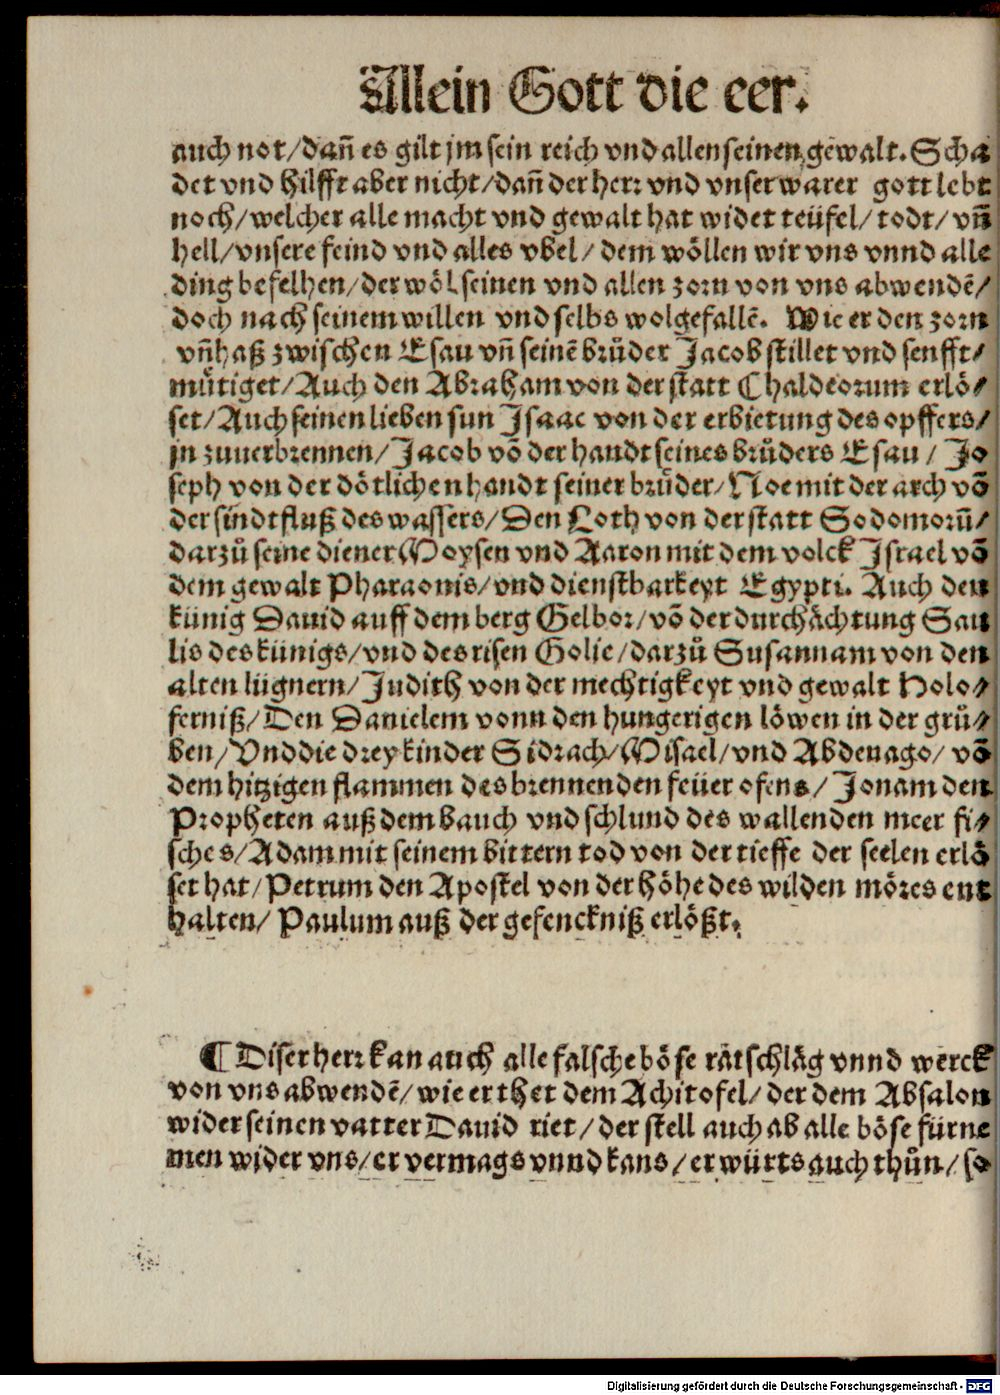 Allein Gott die eer.
auch not/dañ es gilt jm sein reich vnd allen seinen gewalt. Scha
det vnd hilfft aber nicht/dañ der herr vnd vnser warer gott lebt
noch/welcher alle macht vnd gewalt hat widet teüfel/todt/vñ
hell/vnsere feind vnd alles vbel/ dem wöllen wir vns vnnd alle
ding befelhen/der wöl seinen vnd allen zorn von vns abwendẽ/
doch nach seinem willen vnd selbs wolgefallẽ. Wie er den zorn
vñ haß zwischen Esau vñ seinẽ brůder Jacob stillet vnd senfft/
můtiget/Auch den Abraham von der statt Chaldeorum erlö⸗
set/Auch seinen lieben sun Isaac von der erbietung des opffers/
jn zuuerbrennen/Jacob võ der handt seines brůders Esau / Jo
seph von der dötlichen handt seiner brůder/Noe mit der arch võ
der sindtfluß des wassers/Den Loth von der statt Sodomorũ/
darzů seine diener Moysen vnd Aaron mit dem volck Israel võ
dem gewalt Pharaonis/vnd dienstbarkeyt Egypti. Auch den
künig Dauid auff dem berg Gelbor/võ der durchächtung Sau
lis des künigs/vnd des risen Golie/darzů Susannam von den
alten lügnern/Judith von der mechtigkeyt vnd gewalt Holo⸗
ferniß/Den Danielem vonn den hungerigen löwen in der grů⸗
ben/Vnd die drey kinder Sidrach/Misael/vnd Abdenago/ võ
dem hitzigen flammen des brennenden feüer ofens/Jonam den
Propheten auß dem bauch vnd schlund des wallenden meer fi⸗
sches/Adam mit seinem bittern tod von der tieffe der seelen erlö
set hat/Petrum den Apostel von der höhe des wilden möres ent
halten/ Paulum auß der gefenckniß erlößt.
¶ Diser herr kan auch alle falsche böse rätschläg vnnd werck
von vns abwendẽ/wie er thet dem Achitofel/der dem Absalon
wider seinen vatter Dauid riet/der stell auch ab alle böse fürne
men wider vns/er vermags vnnd kans/er würts auch thůn/so
Digitalisierung gefördert durch die Deutsche Forschungsgemeinschaft - DFG